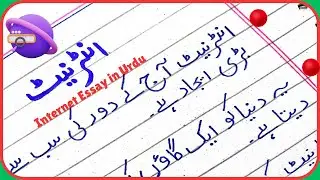 انٹرنیٹ
Internet Essay in Urdu
انٹرنیٹ آج کے دور کی سب سے
بڑی ایجاد ہے۔
یہ دنیا کو ایک گاؤں
دیتا ہے۔